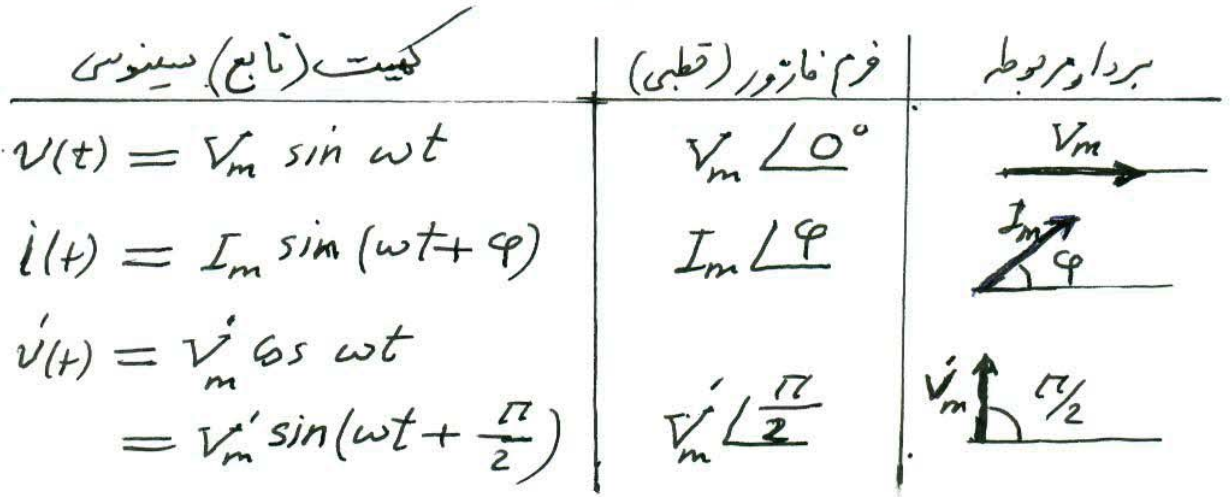 کمیت (تابع) سینوسی | فرم فازور (قطبی) | بردار مربوطه
v(t) = Vₘ sin ωt | Vₘ ∠0° | Vₘ
i(t) = Iₘ sin (ωt + φ) | Iₘ ∠φ | Iₘ φ
v́(t) = V́ₘ cos ωt
= V́ₘ sin(ωt + π/2) | V́ₘ ∠π/2 | V́ₘ π/2